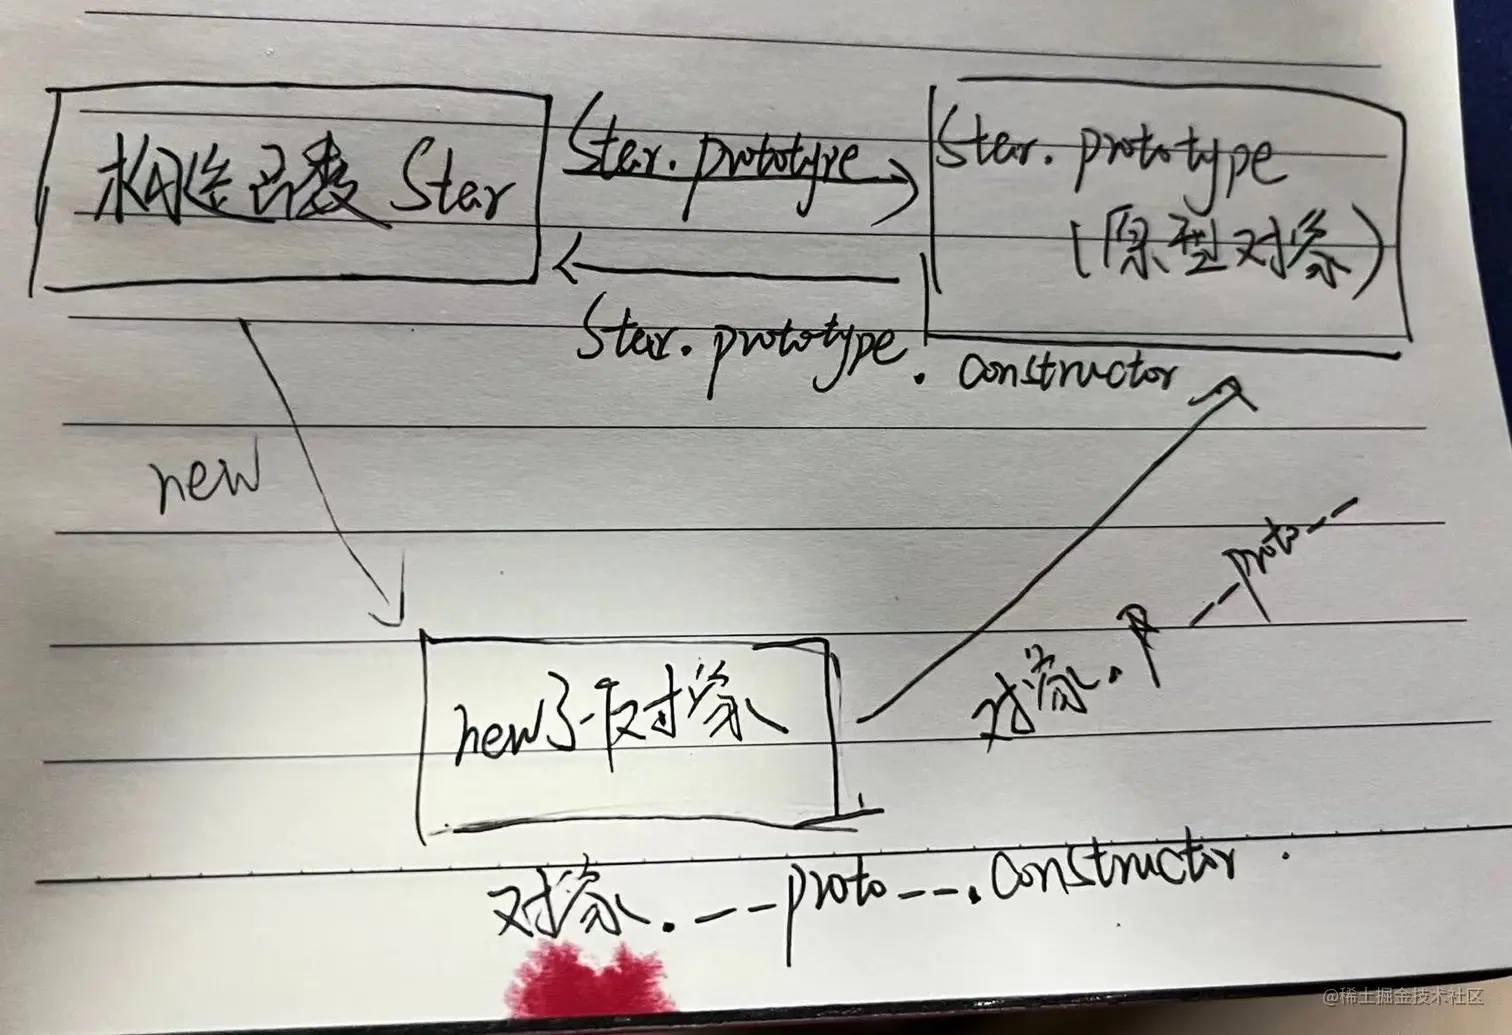 构造函数 Star
Star.prototype
Star.prototype
(原型对象)
Star.prototype.constructor
new
对象. __proto__
new了一个对象
对象.__proto__.constructor.
@稀土掘金技术社区